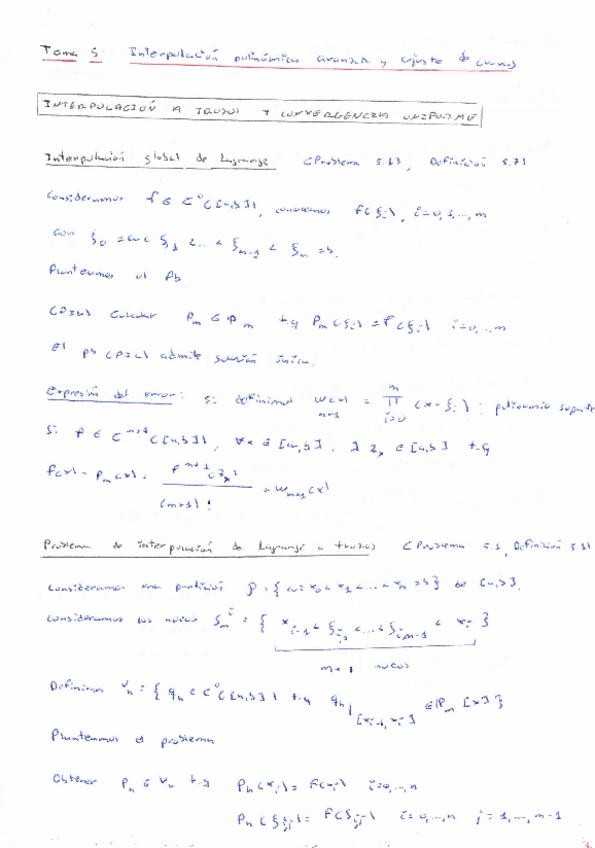 Tema 5 Interpolación polinómica avanzada y ajuste de curvas
INTERPOLACIÓN A TROZOS Y CONVERGENCIA UNIFORME
Interpolación global de Lagrange (Problema 5.6), Definición 5.7)
Consideramos f ∈ C⁰([a,b]), conocemos f(ξᵢ), i=0,1,...,m
con ξ₀ = a < ξ₁ < ... < ξₘ₋₁ < ξₘ = b.
Planteamos el Pb
(PIL) Calcular Pₘ ∈ ℙₘ t.q Pₘ(ξᵢ) = f(ξᵢ) i=0,...,m
El pb (PIL) admite solución única.
Expresión del error: si definimos wₘ₊₁(x) = ∏ᵢ₌₀ᵐ (x-ξᵢ) : polinomio soporte
Si f ∈ Cᵐ⁺¹([a,b]), ∀x ∈ [a,b], ∃ zₓ ∈ [a,b] t.q
f(x) - Pₘ(x) = fᵐ⁺¹(zₓ) / (m+1)! · wₘ₊₁(x)
Problema de interpolación de Lagrange a trozos (Problema 5.1, Definición 5.3)
Consideramos una partición P = {a = x₀ < x₁ < ... < xₙ = b} de [a,b].
Consideramos los nodos Sₘⁱ = { xᵢ₋₁ < ξᵢ,₁ < ... < ξᵢ,ₘ₋₁ < xᵢ }
m+1 nodos
Definimos Vₕ = { qₕ ∈ C⁰([a,b]) t.q qₕ|[xᵢ₋₁,xᵢ] ∈ ℙₘ[x] }
Planteamos el problema
Obtener Pₕ ∈ Vₕ t.q Pₕ(xᵢ) = f(xᵢ) i=0,...,n
Pₕ(ξᵢⱼ) = f(ξᵢⱼ) i=0,...,n j=1,...,m-1